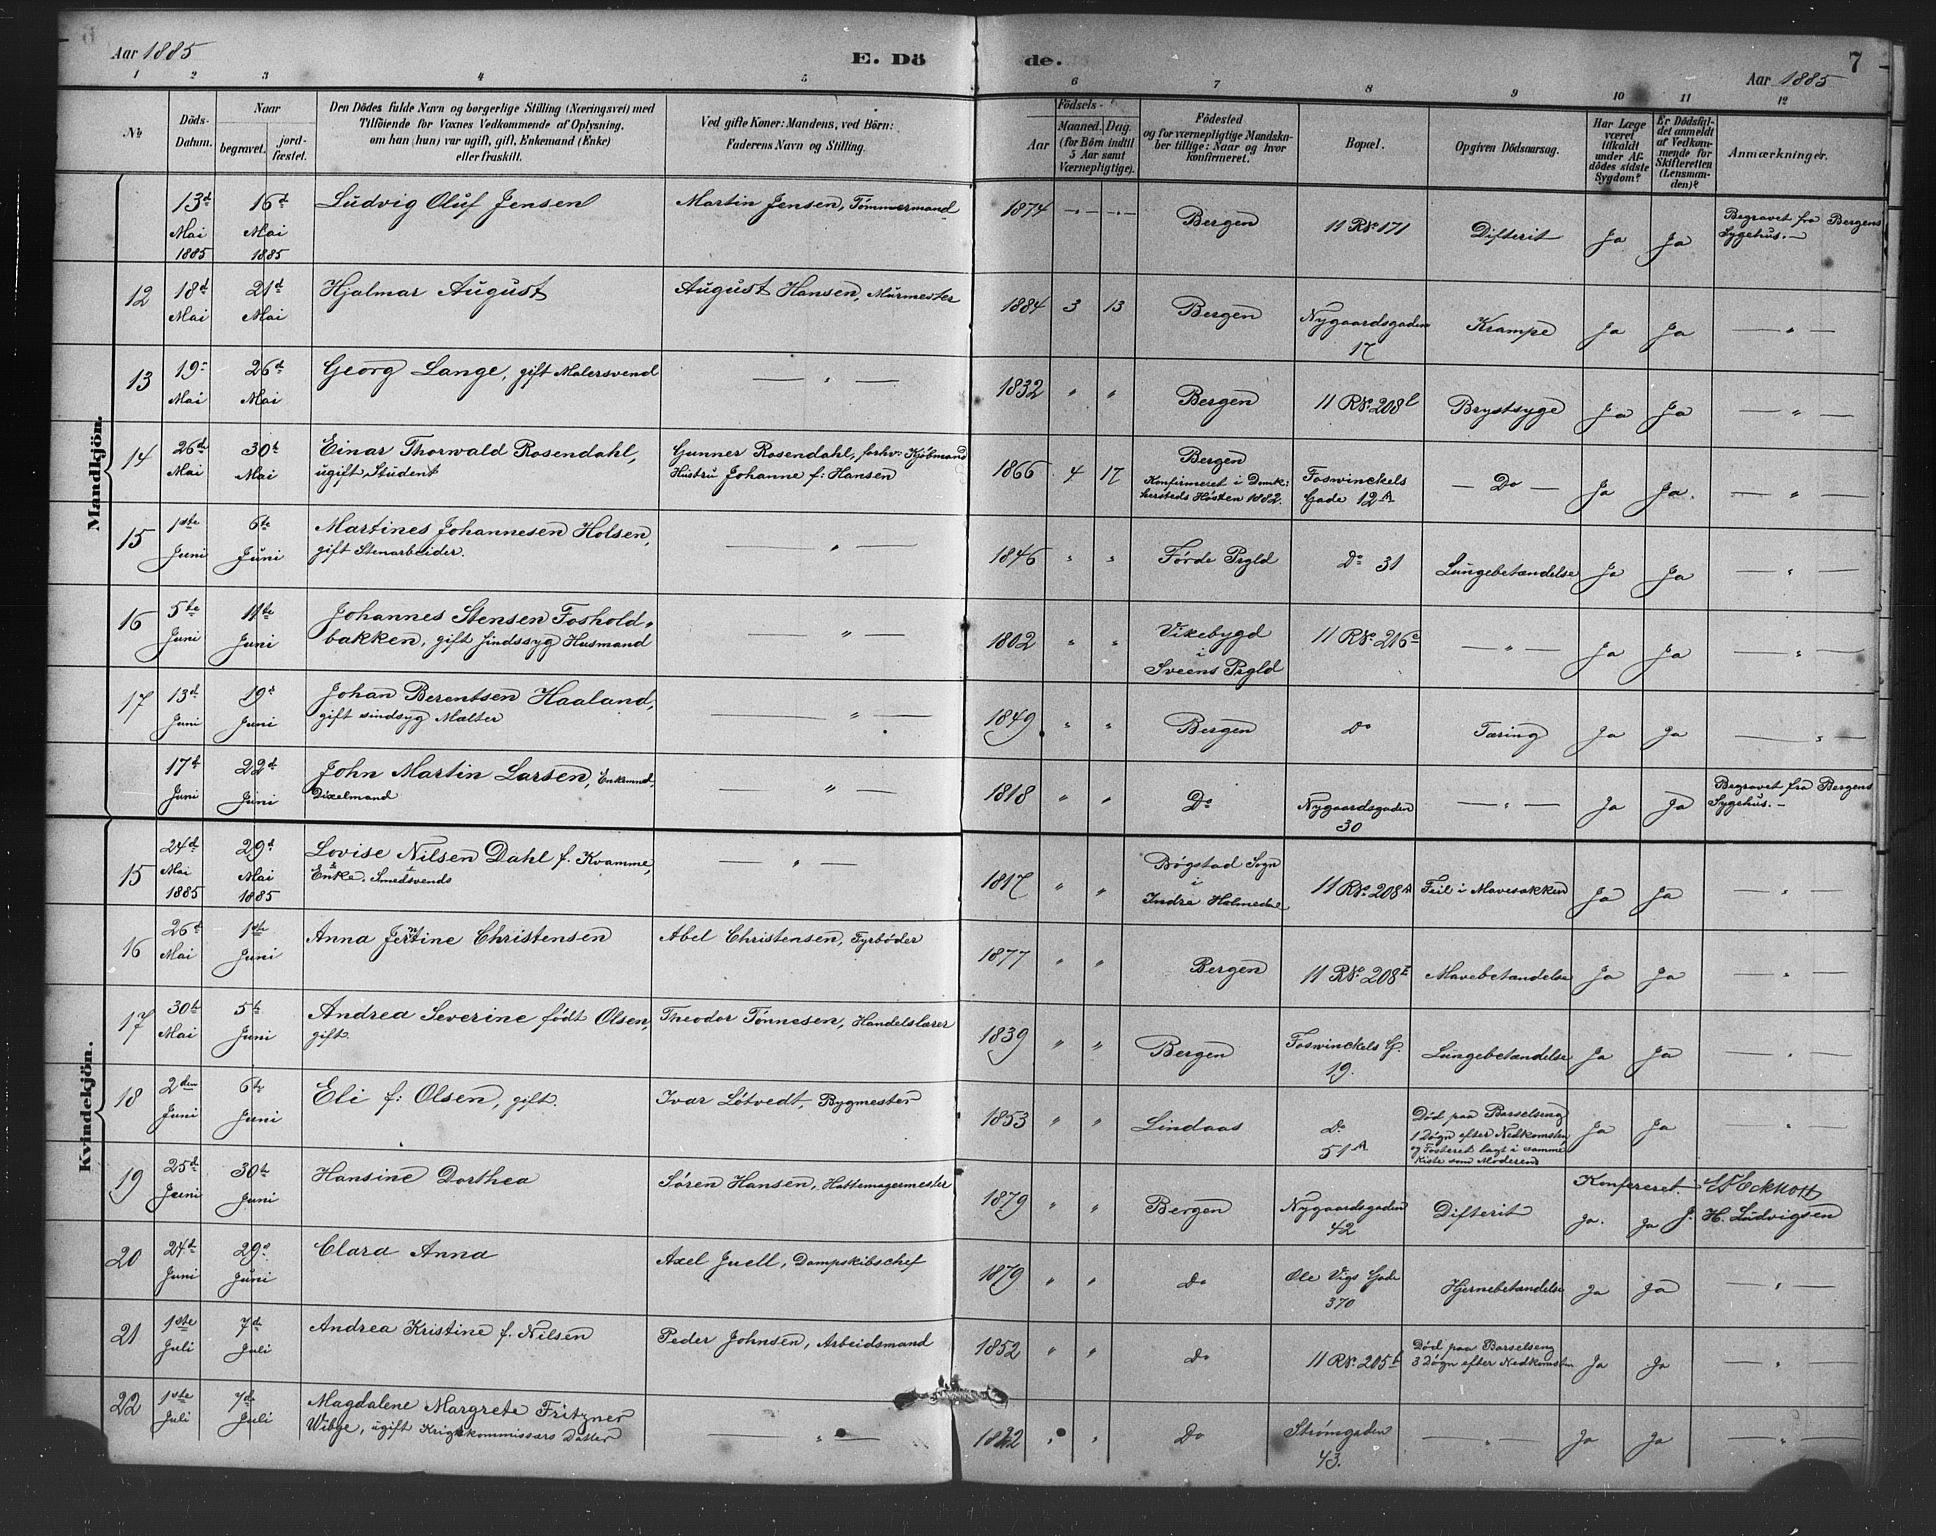 Aar 1885
E. Dö
de.
7
Aar 1885
1 2 3 4 5 6 7 8 9 10 11 12
№
Döds-Datum.
Naar
begravet.
jordfæstet.
Den Dödes fulde Navn og borgerlige Stilling (Næringsvei) med
Tilföiende for Voxnes Vedkommende af Oplysning,
om han (hun) var ugift, gift, Enkemand (Enke)
eller fraskilt.
Ved gifte Koner: Mandens, ved Börn:
Faderens Navn og Stilling.
Födsels-
Aar
Maaned. Dag.
(for Börn indtil
5 Aar samt
Værnepligtige).
Födested
og for værnepligtige Mandskaber tillige: Naar og hvor
konfirmeret.
Bopæl.
Opgiven Dödsaarsag.
Har Læge
været
tilkaldt
under Afdödes sidste
Sygdom?
Er Dödsfaldet anmeldt
af Vedkommende for
Skifteretten
(Lensmanden)?
Anmærkninger.
Mandkjön.
13d Mai 1885 16d Mai 1885 Ludvig Oluf Jensen Martin Jensen, Tømmermand 1874 — — Bergen 11 R№ 171 Difterit Ja Ja Begravet fra Bergens Sygehus. —
12 18d Mai 21d Mai Hjalmar August August Hansen, Murmester 1884 3 13 Bergen Nygaardsgaden 17 Krampe Ja Ja — " —
13 19 Mai 26d Mai Georg Lange, gift Malersvend — " — 1832 " " Bergen 11 R№ 208 Brystsyge Ja Ja — " —
14 26de Mai 30t Mai Einar Thorwald Rosendahl,
ugift Student
Gunner Rosendahl, forhv: Kjøbmand
Hustru Johanne f: Hansen
1866 4 17 Bergen
Konfirmeret i Domk:
Høsten 1882.
Foswinckels
Gade 12A
— Do — Ja Ja. — " —
15 1ste Juni 6te Juni Martines Johannesen Holsen,
gift Stenarbeider.
— " — 1846 " " Førde Prgld Do 31 Lungebetændelse Ja Ja — " —
16 5te Juni 11te Juni Johannes Stensen Foshold-
bakken, gift sindssyg Husmand
— " — 1802 " " Vikebygd
i
Sveens Prgld
11 R№ 216 — " — Ja Ja — " —
17 13d Juni 19 Juni Johan Berentsen Haaland,
gift sindsyg Mælter
— " — 1849 " " Bergen Do Tæring Ja Ja — " —
17d Juni 22d Juni John Martin Larsen, Enkemnd,
Dixelmand
— " — 1818 " " Do Nygaardsgaden
30
— " — Ja Ja Begravet fra Bergens
Sygehus. —
Kvindekjön.
15 24d Mai 1885 29d Mai 1885 Lovise Nilsen Dahl f. Kvamme,
Enke. Smedsvends
— " — 1817 " " Bøgstad Sogn
i
Indre Holmedal
11 R№ 208A Feil i Mavesækken Ja Ja — " —
16 26d Mai 1ste Juni Anna Jentine Christensen Abel Christensen, Fyrbøder 1877 " " Bergen 11 R№ 208 Mavebetændelse Ja Ja — " —
17 30te Mai 5te Juni Andrea Severine født Olsen,
gift.
Theodor Tønnesen, Handelslærer 1839 " " Bergen Foswinckels G.
19.
Lungebetændelse Ja Ja — " —
18 2den Juni 6te Juni Eli f: Olsen, gift. Ivar Løtvedt, Bygmester 1853 " " Lindaas Do
51A
Død paa Barselseng
1 Døgn efter Nedkomsten,
og Fosteret lagt i samme
Kiste som Moderens
Ja Ja — " —
19 25d Juni 30te Juni Hansine Dorthea Søren Hansen, Hattemagermester 1879 " " Bergen Nygaardsgaden
42
Difterit Ja. Ja
Konfereret. Eckhoff
J. H. Ludvigsen
20 24de Juni 29 Juni Clara Anna Axel Juell, Dampskibschef 1879 " " Do Ole Vigs Gade
370
Hjernebetændelse Ja Ja — " —
21 1ste Juli 7de Juli Andrea Kristine f. Nilsen Peder Johnsen, Arbeidsmand 1852 " " Do 11 R№ 205 Død paa Barselseng
3 Døgn efter Nedkomsten
Ja Ja — " —
22 1ste Juli 7de Juli Magdalene Margrete Fritzner
Wibye, ugift Krigskommissærs Datter
— " — 1822 " " Do Strømgaden
43.
— " — Ja Ja — " —